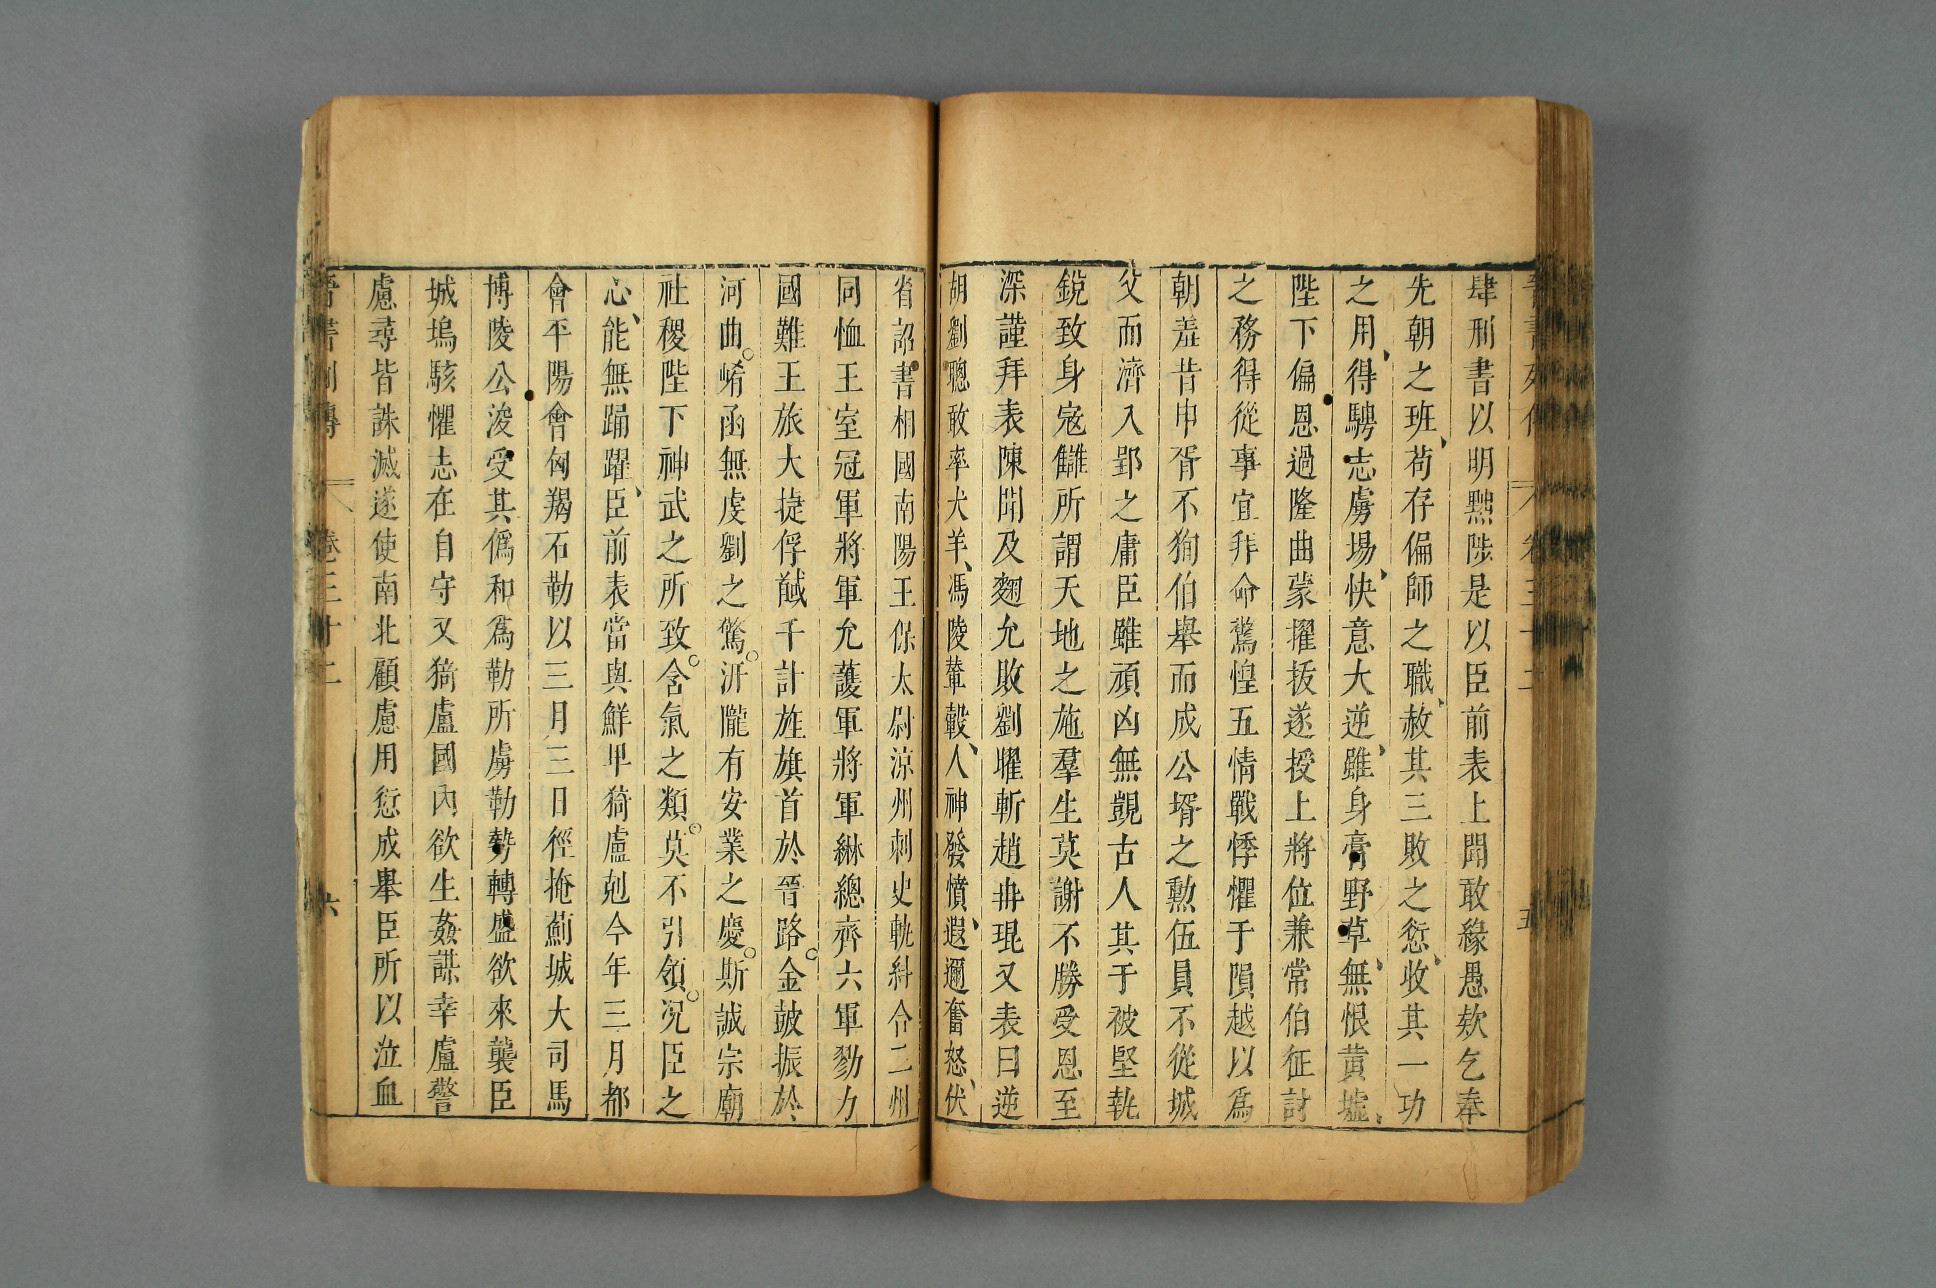 晉書列傳 卷三十二 五
肆刑書以明黜陟是以臣前表上聞敢緣愚欵乞奉
先朝之班、苟存偏師之職、赦其三敗之愆、收其一功
之用、得騁志虜場、快意大逆、雖身膏野草、無恨黃墟、
陛下偏恩過隆曲蒙擢拔遂授上將位兼常伯征討
之務得從事宜拜命驚惶五情戰悸懼于隕越以爲
朝羞昔申胥不狥伯舉而成公壻之勲伍員不從城
父而濟入郢之庸臣雖頑凶無覬古人其于被堅執
銳致身宼讎所謂天地之施羣生莫謝不勝受恩至
深謹拜表陳聞及麴允敗劉曜斬趙冉琨又表曰逆
胡劉聰敢率犬羊、馮陵輦轂、人神發憤、遐邇奮怒、伏
省詔書相國南陽王保太尉涼州刺史軌糾合二州
同恤王室冠軍將軍允護軍將軍綝總齊六軍勠力
國難王旅大捷俘馘千計旌旗首於晉路。金皷振於
河曲。崤函無虔劉之驚。汧隴有安業之慶。斯誠宗廟
社稷陛下神武之所致。含氣之類。莫不引領。況臣之
心、能無踊躍、臣前表當與鮮卑猗盧剋今年三月都
會平陽會匈羯石勒以三月三日徑掩薊城大司馬
博陵公浚受其僞和爲勒所虜勒勢轉盛欲來襲臣
城塢駭懼志在自守又猗盧國內欲生姦謀幸盧警
慮尋皆誅滅遂使南北顧慮用愆成舉臣所以泣血
晉書列傳 卷三十二 六